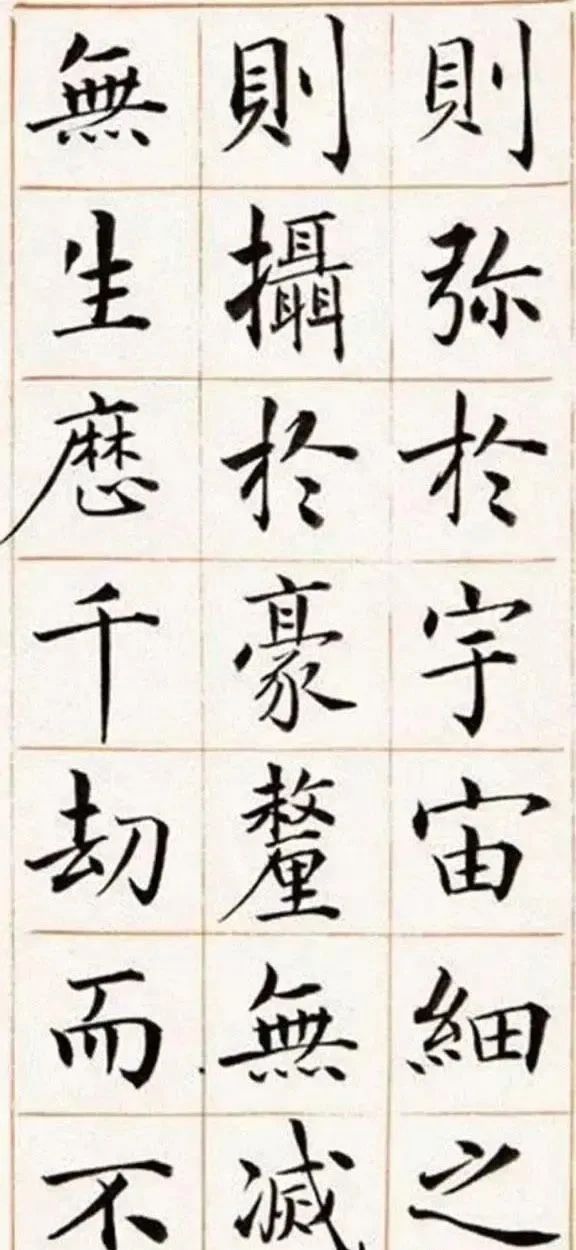 則弥於宇宙細之
則攝於豪釐無滅
無生歷千劫而不